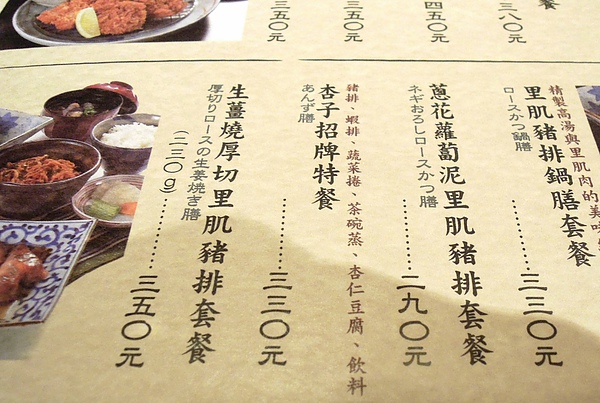 三八〇元
四五〇元
三五〇元
三五〇元
餐
精製高湯與里肌肉的美味
里肌豬排鍋膳套餐
ロースかつ鍋膳
三三〇元
蔥花蘿蔔泥里肌豬排套餐
ネギおろしロースかつ膳
二九〇元
豬排、蝦排、蔬菜捲、茶碗蒸、杏仁豆腐、飲料
杏子招牌特餐
あんず膳
三三〇元
生薑燒厚切里肌豬排套餐
厚切りロースの生姜焼き膳
(二三〇g)
三五〇元